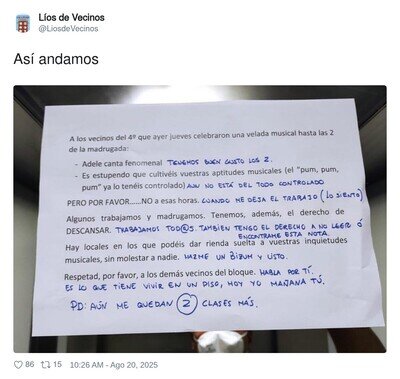 Líos de Vecinos
@LiosdeVecinos
Así andamos
A los vecinos del 4º que ayer jueves celebraron una velada musical hasta las 2
de la madrugada:
- Adele canta fenomenal TENEMOS BUEN GUSTO LOS 2.
- Es estupendo que cultivéis vuestras aptitudes musicales (el "pum, pum,
pum" ya lo tenéis controlado) AUN NO ESTÁ DEL TODO CONTROLADO
PERO POR FAVOR......NO a esas horas. CUANDO ME DEJA EL TRABAJO (LO SIENTO)
Algunos trabajamos y madrugamos. Tenemos, además, el derecho de
DESCANSAR. TRABAJAMOS TOD@S. TAMBIEN TENGO EL DERECHO A NO LEER Ó
ENCONTRAME ESTA NOTA.
Hay locales en los que podéis dar rienda suelta a vuestras inquietudes
musicales, sin molestar a nadie. HAZME UN BIZUM Y LISTO.
Respetad, por favor, a los demás vecinos del bloque. HABLA POR TÍ.
ES LO QUE TIENE VIVIR EN UN PISO, HOY YO MAÑANA TÚ.
PD: AÚN ME QUEDAN 2 CLASES MÁS.
86 15 10:26 AM - Ago 20, 2025